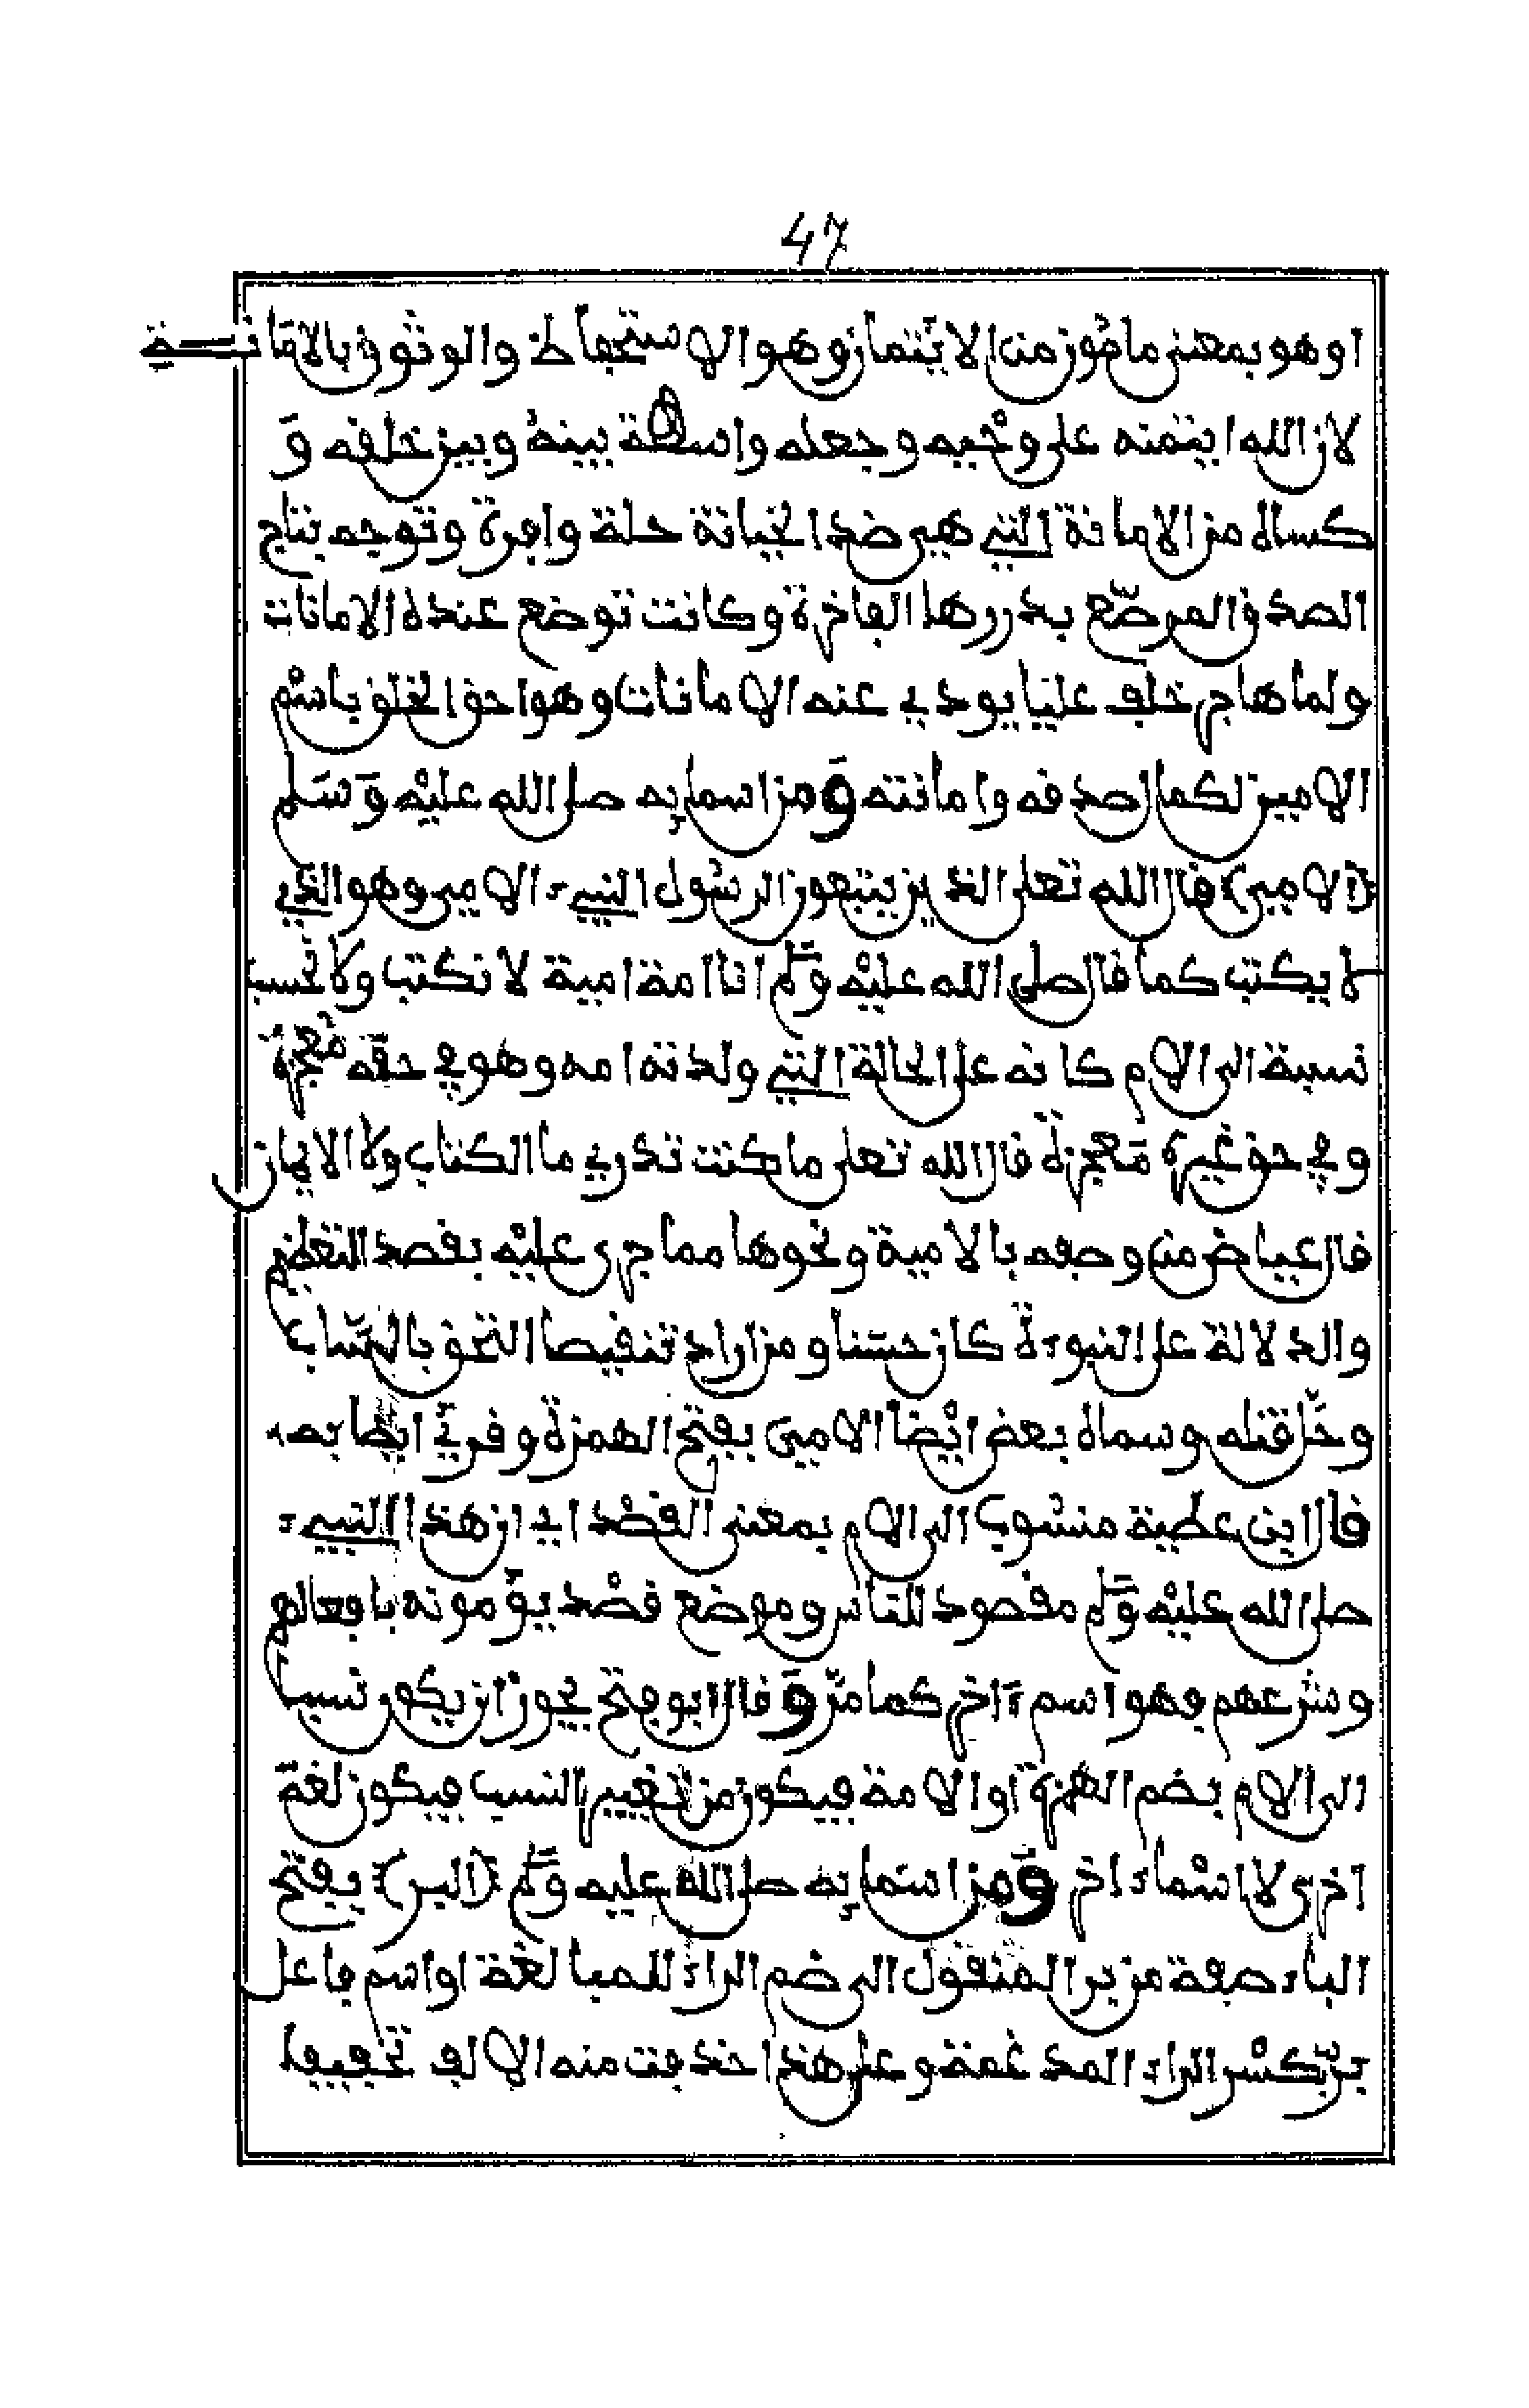 47
او هو بمعنى مامون من الايتمان وهو الاستحفاظ والوثوق بالامانــة
لان الله ايتمنه على وحيه وجعله واسطة بينه وبين خلقه و
كساه من الامانة التي هي ضد الخيانة حلة وافرة وتوجه بتاج
الصدق المرصع بدررها الفاخرة وكانت توضع عنده الامانات
ولما هاجر خلف عليا يودي عنه الامانات وهو احق الخلق باسم
الامين لكمال صدقه وامانته ومن اسمايه صلى الله عليه وسلم
(الامي) قال الله تعلى الذين يتبعون الرسول النبيء الامي وهو الذي
لا يكتب كما قال صلى الله عليه وسلم انا امة امية لا نكتب ولا نحسب
نسبة الى الام كانه على الحالة التي ولدته امه وهو في حقه معجزة
وفي حق غيره معجزة قال الله تعلى ما كنت تدري ما الكتاب ولا الايمان
قال عياض من وصفه بالامية ونحوها مما جرى عليه بقصد التعظيم
والدلالة على النبوءة كان حسنا ومن اراد تنقيصا التحق بالساب
وحل قتله وسماه بعض ايضا الامي بفتح الهمزة وقرئ ايضا به
قال ابن عطية منسوب الى الام بمعنى القصد اي ان هذا النبيء
صلى الله عليه وسلم مقصود للناس وموضع قصد يؤمونه بافعالهم
وشرعهم فهو اسم ءاخر كما مر وقال ابو فتح يجوز ان يكون نسب
الى الام بضم الهمزة او الامة فيكون من تغيير النسب فيكون لغة
اخرى لا اسماء اخر ومن اسمايه صلى الله عليه وسلم (البر) بفتح
الباء صفة من بر المنقول الى ضم الراء للمبالغة او اسم فاعل
بر بكسر الراء المدغمة وعلى هذا حذفت منه الالف تخفيفا